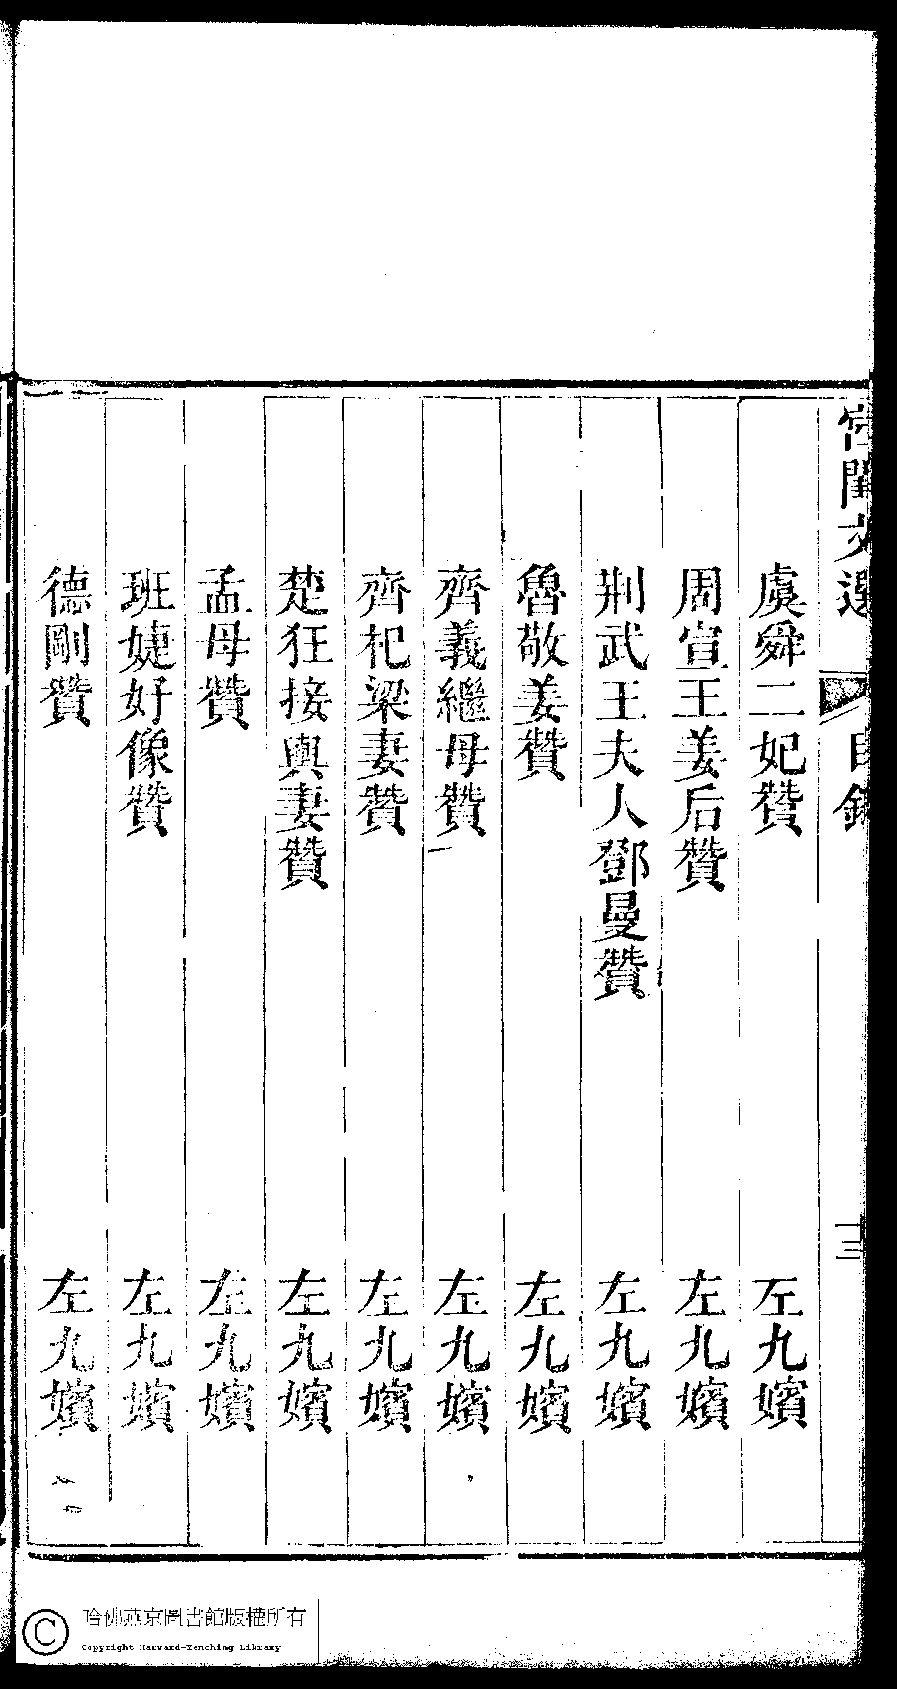 宮閨文選 目錄 三
虞舜二妃贊 左九嬪
周宣王姜后贊 左九嬪
荆武王夫人鄧曼贊 左九嬪
魯敬姜贊 左九嬪
齊義繼母贊 左九嬪
齊杞梁妻贊 左九嬪
楚狂接輿妻贊 左九嬪
孟母贊 左九嬪
班婕妤像贊 左九嬪
德剛贊 左九嬪
哈佛燕京圖書館版權所有
Copyright Harvard-Yenching Library